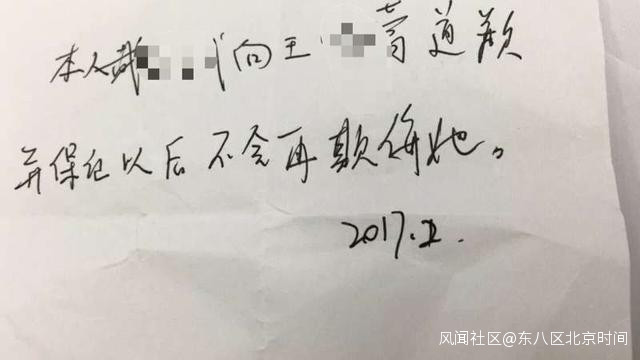 本人 向王 道歉
并保证以后不会再欺侮她。
2017.2.
风闻社区@东八区北京时间